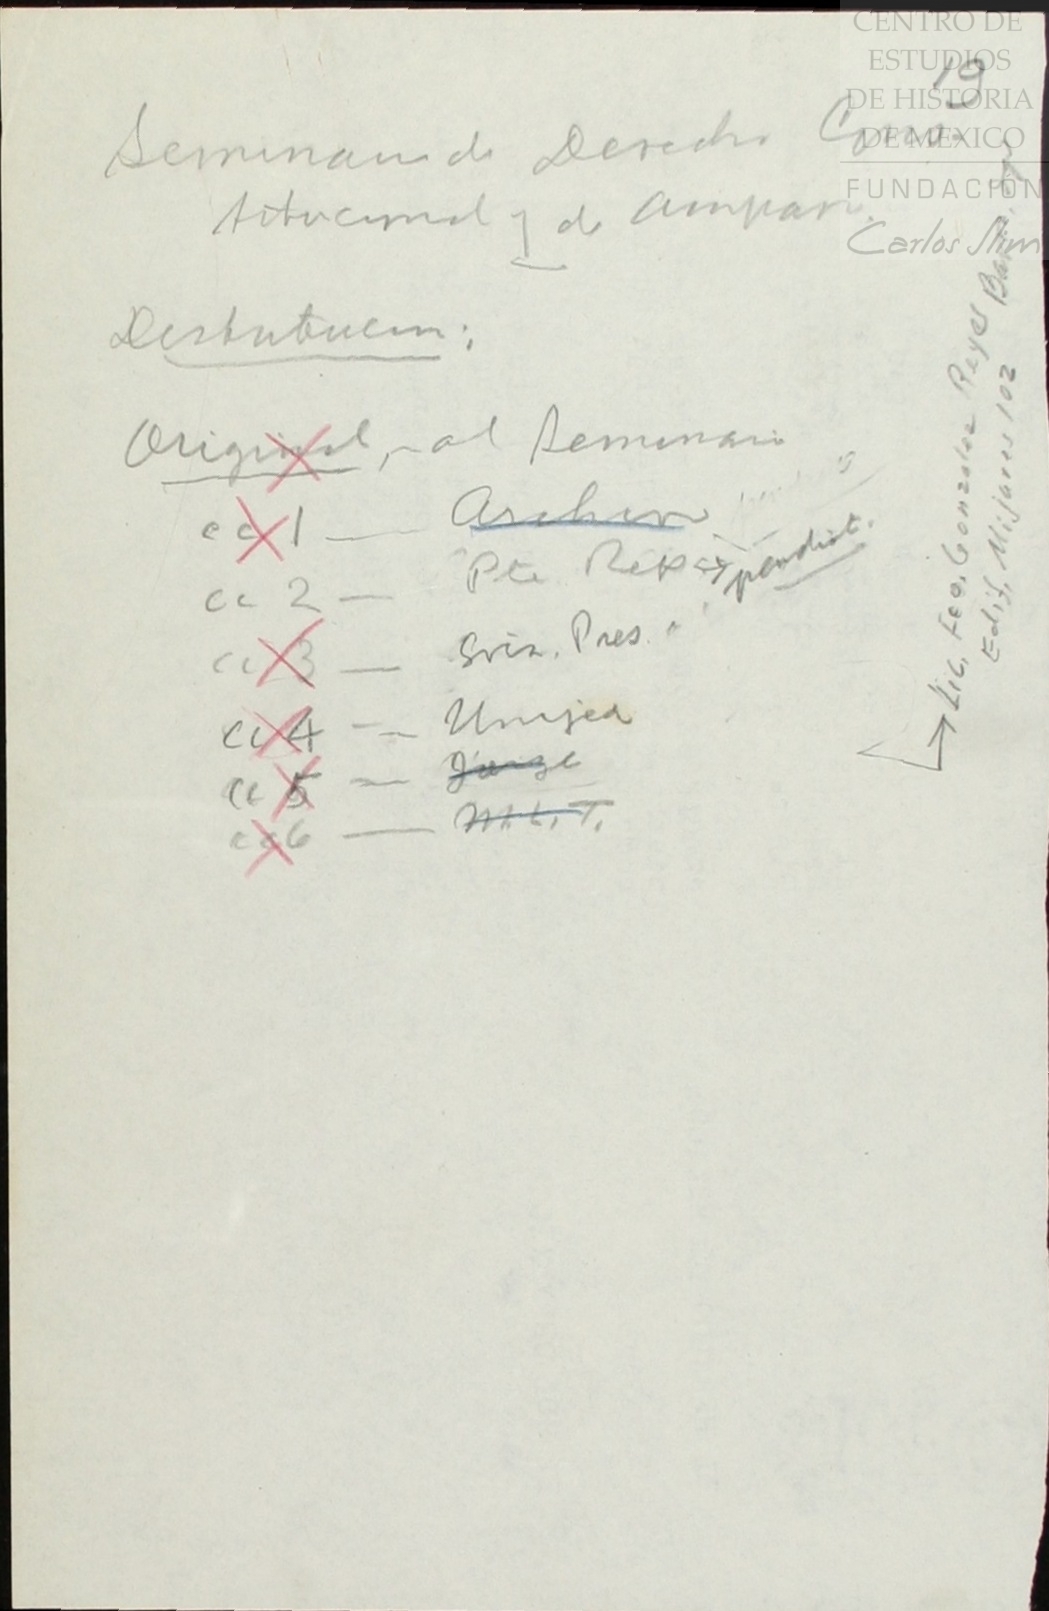 CENTRO DE
ESTUDIOS
DE HISTORIA
DE MÉXICO
FUNDACIÓN
Carlos Slim
19
Seminario de Derecho Cons-
titucional y de Amparo.
Distribucion:
Original, - al Seminario
cc 1 — Archivo
cc 2 — Pte Rep pendiente.
cc 3 — Sria. Pres. "
cc 4 — Unijea
cc 5 — Jorge
cc 6 — M.L.T.
Lic. Fco. Gonzalez Reyes
Edif. Mijares 102